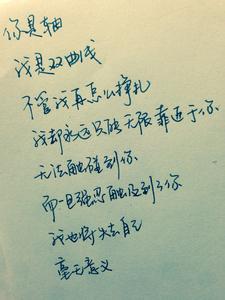 你是轴
我是双曲线
不管我再怎么挣扎
我却永远只能无限靠近于你
无法触碰到你
而一旦强忍触及到了你
我也将失去自己
毫无意义